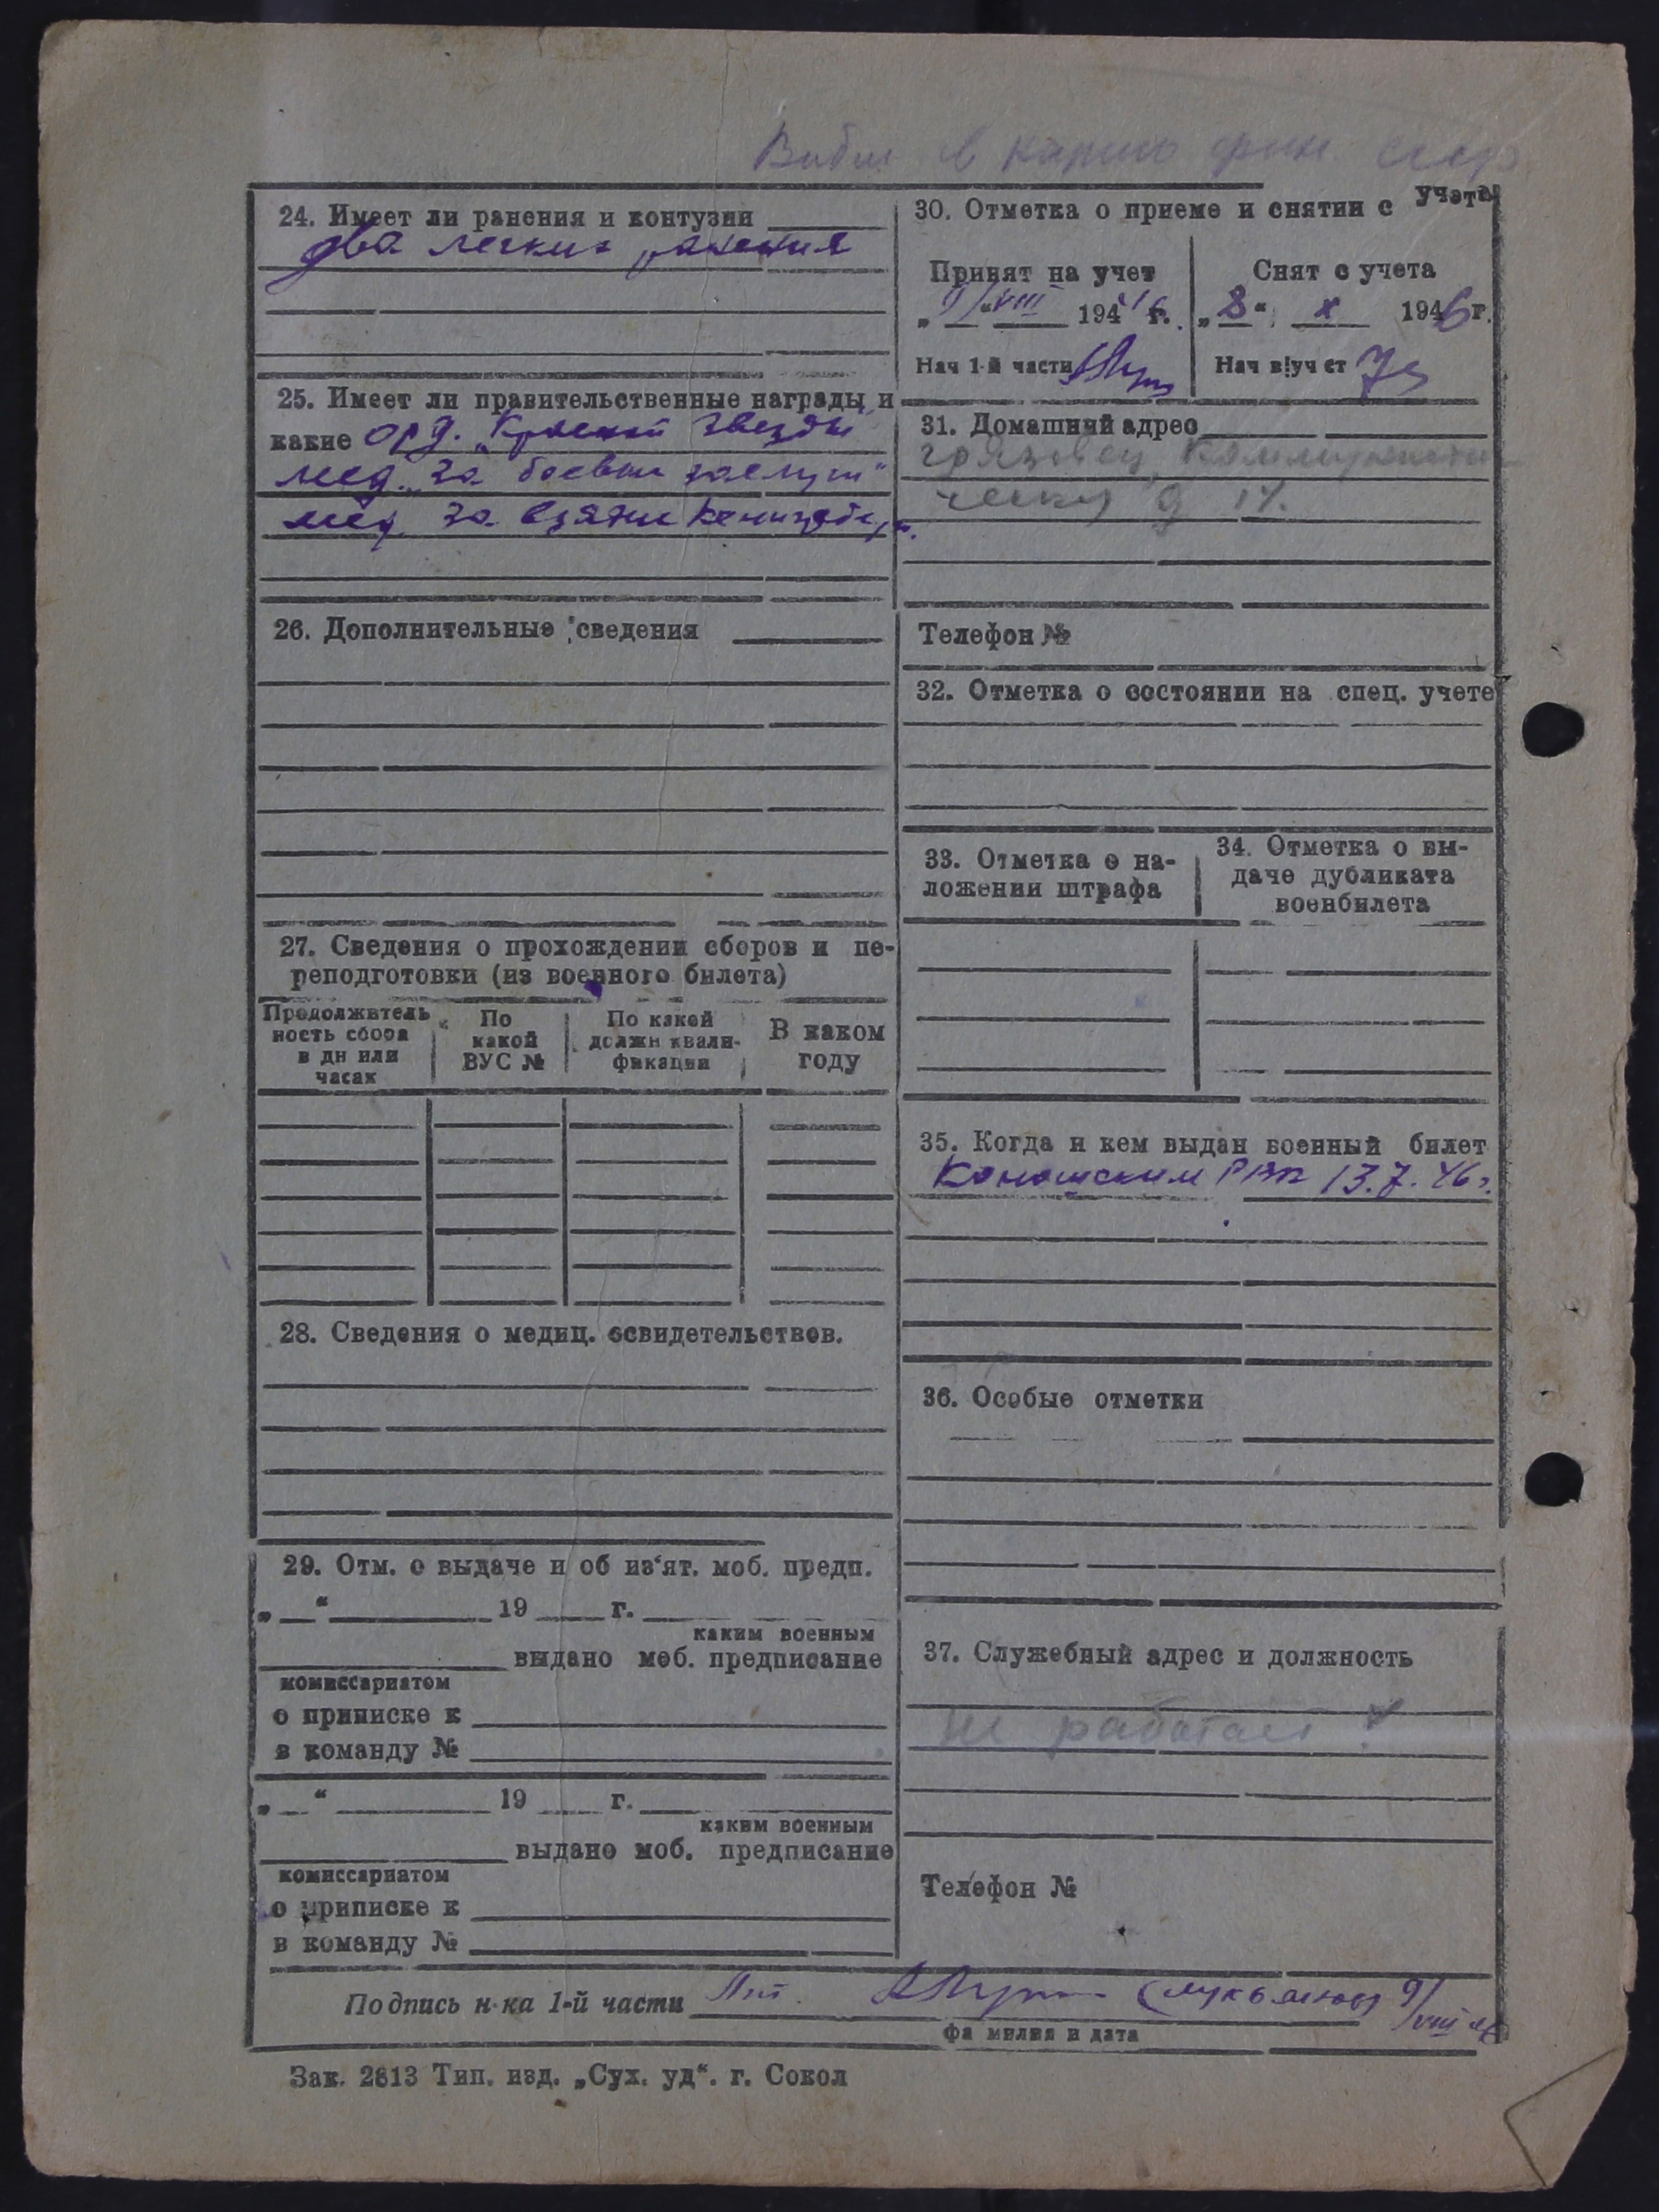 в карело фин. ссср
24. Имеет ли ранения и контузии
два легких ранения
25. Имеет ли правительственные награды и
какие орд. „Красной звезды"
мед. „за боевые заслуги"
мед. за взятие Кенигсберга.
26. Дополнительные сведения
27. Сведения о прохождении сборов и пе-
реподготовки (из военного билета)
Продолжитель
ность сбора
в дн или
часах
По
какой
ВУС №
По какой
должн квали-
фикации
В каком
году
28. Сведения о медиц. освидетельствов.
29. Отм. о выдаче и об из‘ят. моб. предп.
„ “ 19 г.
каким военным
выдано моб. предписание
комиссариатом
о приписке к
в команду №
„ “ 19 г.
каким военным
выдано моб. предписание
комиссариатом
о приписке к
в команду №
30. Отметка о приеме и снятии с учета
Принят на учет
„9/“ VIII 1946 г.
Нач 1-й части
Снят с учета
„8“ X 1946 г.
Нач в/уч ст
31. Домашний адрес
грязовец, Коммунисти-
ческая д 14.
Телефон №
32. Отметка о состоянии на спец. учете
33. Отметка о на-
ложении штрафа
34. Отметка о вы-
даче дубликата
военбилета
35. Когда и кем выдан военный билет
Коношским РВК 13.7.46г.
36. Особые отметки
37. Служебный адрес и должность
не работает
Телефон №
Подпись н-ка 1-й части Лит. (Лукьянов) 9/VIII 46
фамилия и дата
Зак. 2813 Тип. изд. „Сух. уд“. г. Сокол